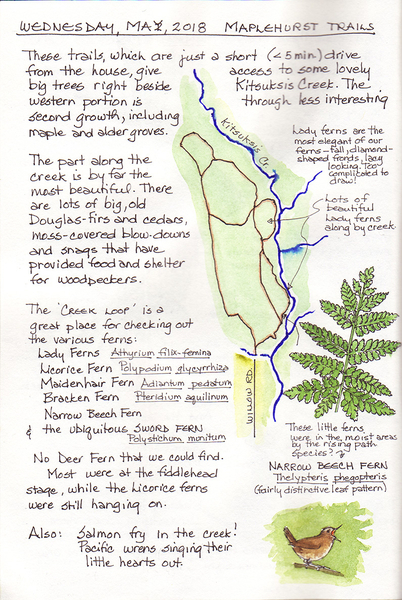 WEDNESDAY, MAY 2, 2018 MAPLEHURST TRAILS
These trails, which are just a short (<5 min.) drive
from the house, give access to some lovely
big trees right beside Kitsuksis Creek. The
western portion is through less interesting
second growth, including
maple and alder groves.
The part along the
creek is by far the
most beautiful. There
are lots of big, old
Douglas-firs and cedars,
moss-covered blow-downs
and snags that have
provided food and shelter
for woodpeckers.
The 'CREEK LOOP' is a
great place for checking out
the various ferns:
Lady Ferns Athyrium filix-femina
Licorice Fern Polypodium glycyrrhiza
Maidenhair Fern Adiantum pedatum
Bracken Fern Pteridium aquilinum
Narrow Beech Fern
& the ubiquitous SWORD FERN
Polystichum munitum
No Deer Fern that we could find.
Most were at the fiddlehead
stage, while the Licorice ferns
were still hanging on.
Also: Salmon fry in the creek!
Pacific wrens singing their
little hearts out.
Kitsuksis Cr.
Lady ferns are the
most elegant of our
ferns - tall, diamond-
shaped fronds, lacy
looking. Too
complicated to
draw!
Lots of
beautiful
Lady ferns
along by creek
WILLOW RD.
These little ferns
were in the moist areas
by the rising path
Species?
NARROW BEECH FERN
Thelypteris phegopteris
(fairly distinctive leaf pattern)